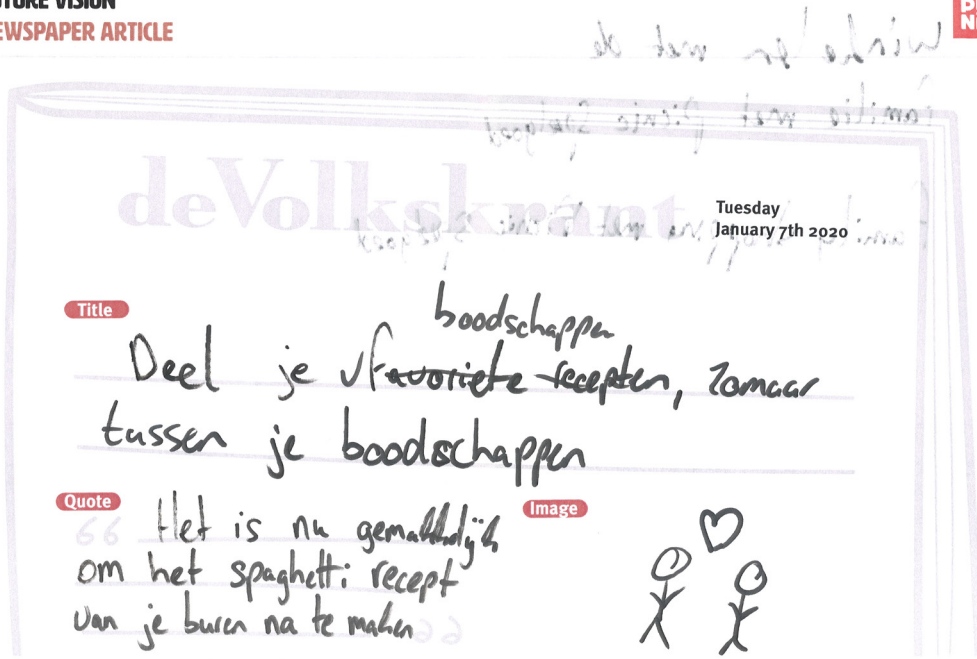 FUTURE VISION
NEWSPAPER ARTICLE
deVolkskrant
Tuesday
January 7th 2020
Title
boodschappen
Deel je favoriete recepten, zomaar
tussen je boodschappen
Quote
Image
Het is nu gemakkelijk
om het spaghetti recept
van je buren na te maken